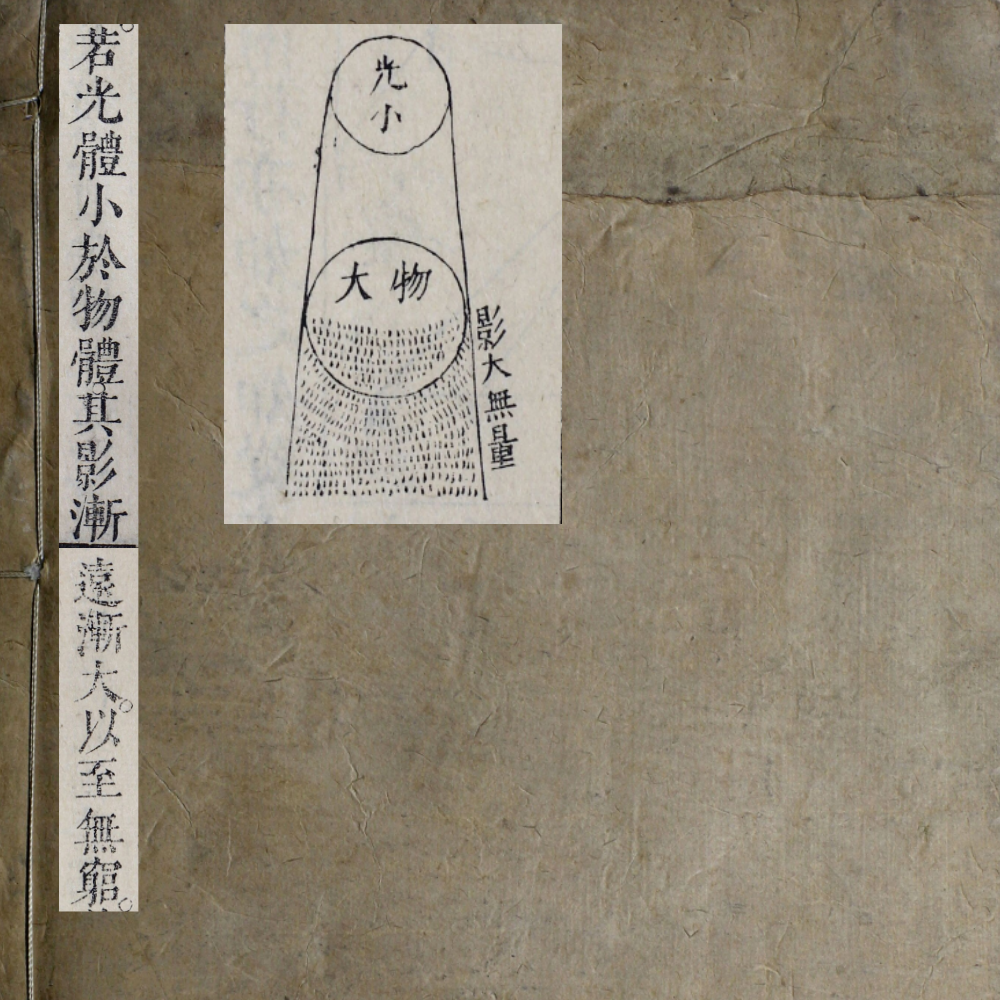 若光體小於物體其影漸
遠漸大。以至無窮。
光小
物大
影大無量